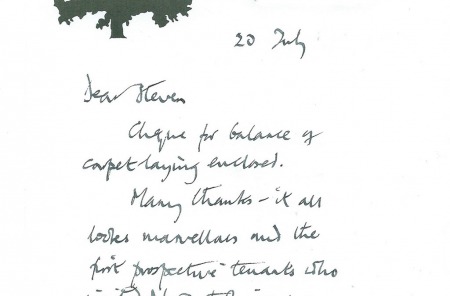 20 July
Dear Steven
Cheque for balance of
carpet laying enclosed.
Many thanks - it all
looks marvellous and the
first prospective tenants who